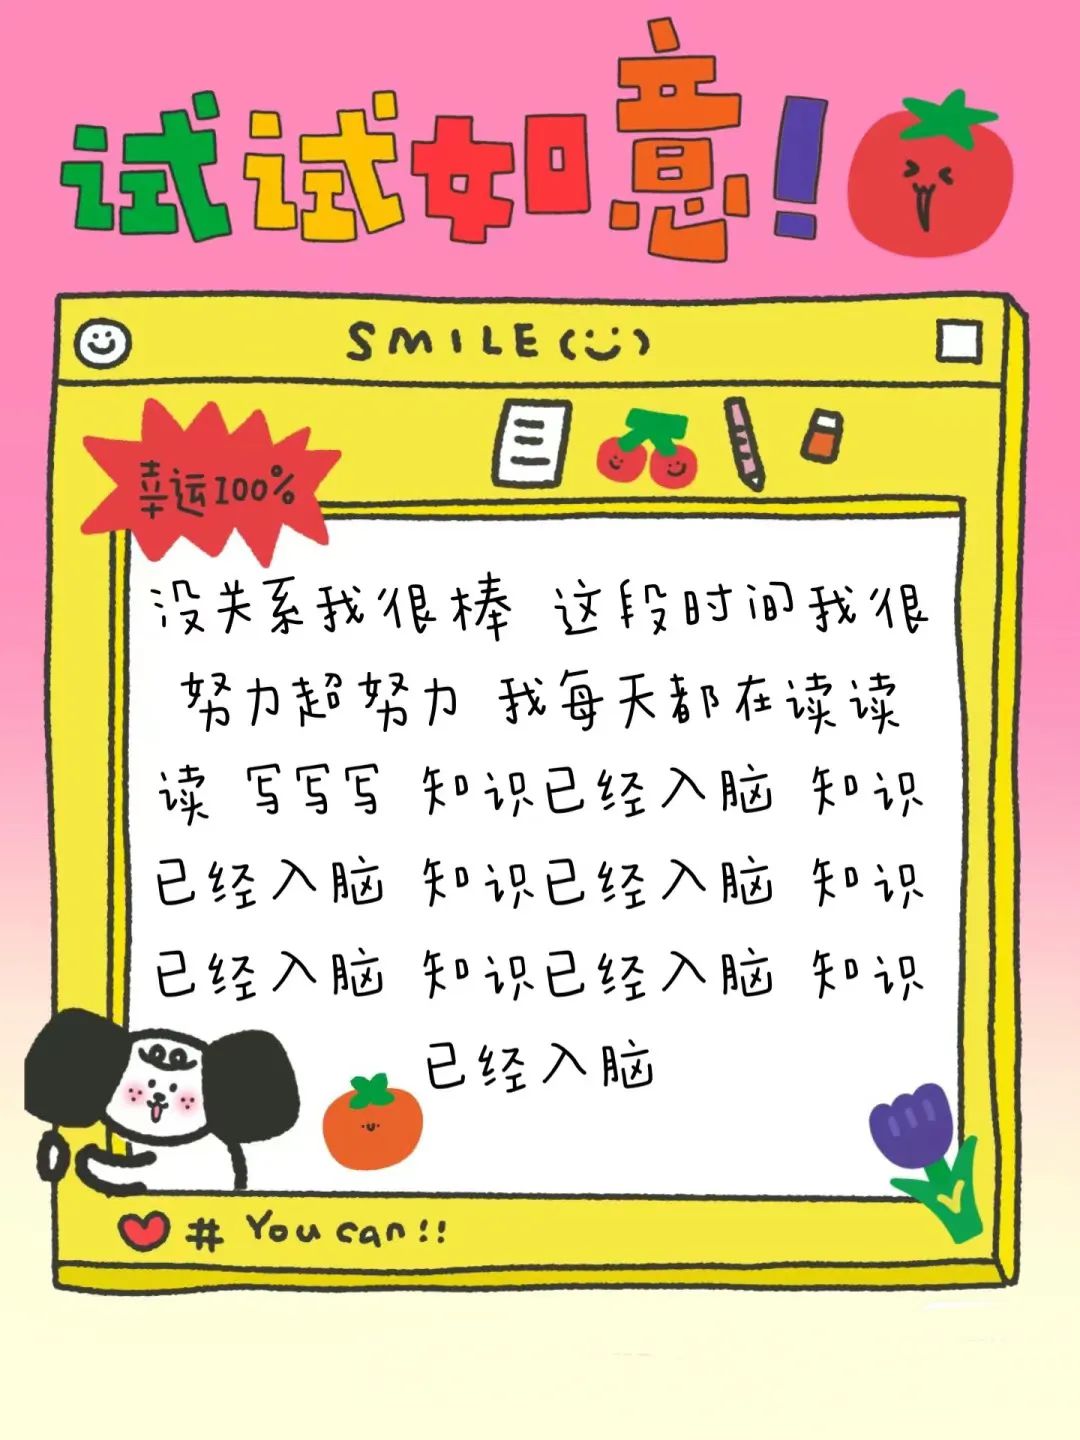 试试如意!
SMILE(:‿)
幸运100%
没关系我很棒 这段时间我很
努力超努力 我每天都在读读
读 写写写 知识已经入脑 知识
已经入脑 知识已经入脑 知识
已经入脑 知识已经入脑 知识
已经入脑
# You can!!